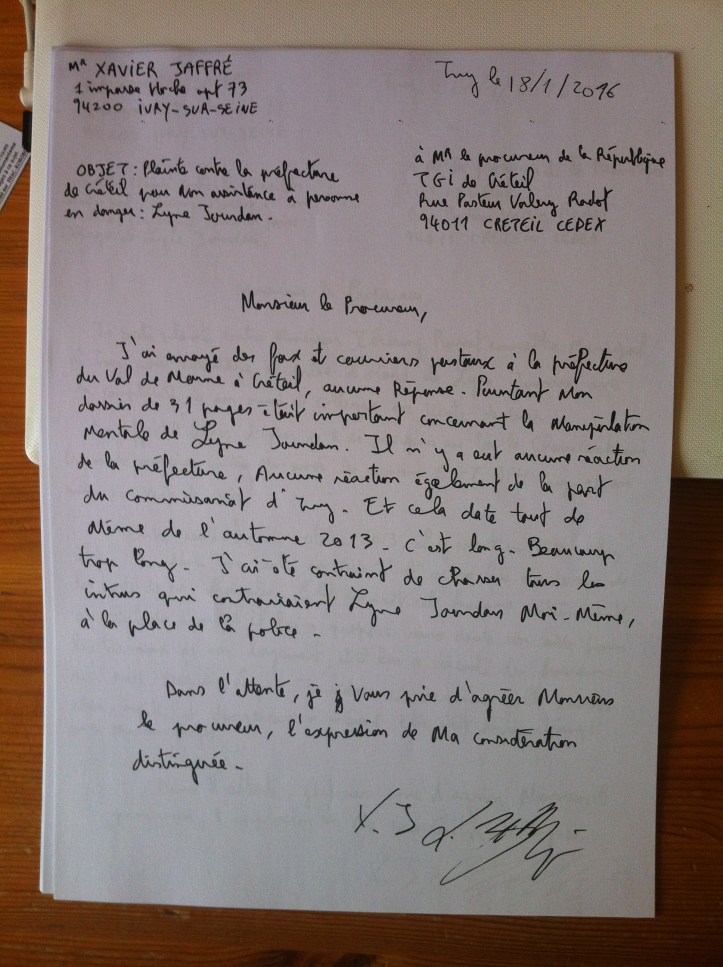 Mr XAVIER JAFFRÉ
1 impasse Hoche apt 73
94200 IVRY-SUR-SEINE
Ivry le 18/1/2016
OBJET: Plainte contre la préfecture
de Créteil pour Non assistence à personne
en danger: Lyne Jourdan.
à Mr le procureur de la République
TGI de Créteil
Rue Pasteur Valery Radot
94011 CRETEIL CEDEX
Monsieur le Procureur,
J'ai envoyé des fax et courriers postaux à la préfecture
du Val de Marne à Créteil, aucune Réponse. Pourtant Mon
dossier de 31 pages était important concernant la Manipulation
Mentale de Lyne Jourdan. Il n'y a eut aucune réaction
de la préfecture, Aucune réaction également de la part
du commissariat d'Ivry. Et cela date tout de
Même de l'automne 2013. C'est long. Beaucoup
trop long. J'ai été contraint de chasser tous les
intrus qui contrariaient Lyne Jourdan Moi-Même,
à la place de la police.
Dans l'attente, je Vous prie d'agréer Monsieur
le procureur, l'expression de Ma considération
distinguée.
X. J